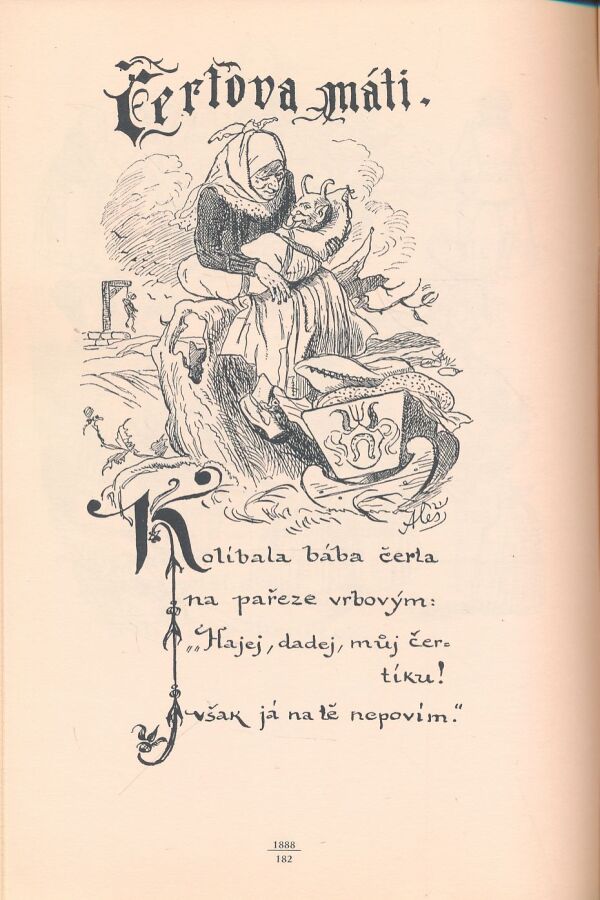 Čertova máti.
Aleš
Kolíbala bába čerta
na pařeze vrbovým:
„Hajej, dadej, můj čer-
tíku!
však já na tě nepovím.“
1888
182